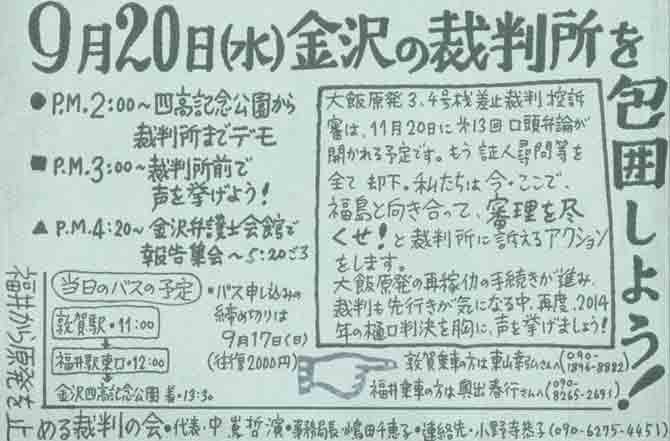 9月20日(水)金沢の裁判所を
包囲しよう!
●P.M.2:00~四高記念公園から
裁判所までデモ
■P.M.3:00~裁判所前で
声を挙げよう!
▲P.M.4:20~金沢弁護士会館で
報告集会~5:20ごろ
大飯原発3、4号機差止裁判控訴
審は、11月20日に第13回口頭弁論が
開かれる予定です。もう証人尋問等を
全て却下。私たちは今・ここで、
福島と向き合って、審理を尽
くせ!と裁判所に訴えるアクション
をします。
大飯原発の再稼仂の手続きが進み、
裁判も先行きが気になる中、再度、2014
年の樋口判決を胸に、声を挙げましょう!
当日のバスの予定
敦賀駅・11:00
福井駅東口・12:00
金沢四高記念公園 着・13:30
・バス申し込みの
締め切りは
9月17日(日)
(往復2000円)
敦賀乗車の方は東山幸弘さんへ(090-
1896-8882)
福井乗車の方は奥出春行さんへ(090-
8265-2691)
福井から原発を止
める裁判の会・代表・中嶌哲演・事務局長・嶋田千恵子・連絡先・小野寺恭子(090-6275-4451)